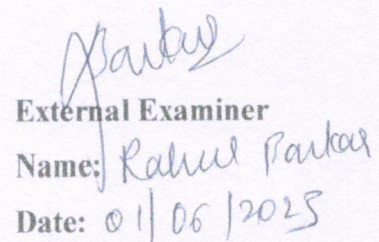 External Examiner
Name: Rahul
Date: 01/06/2025